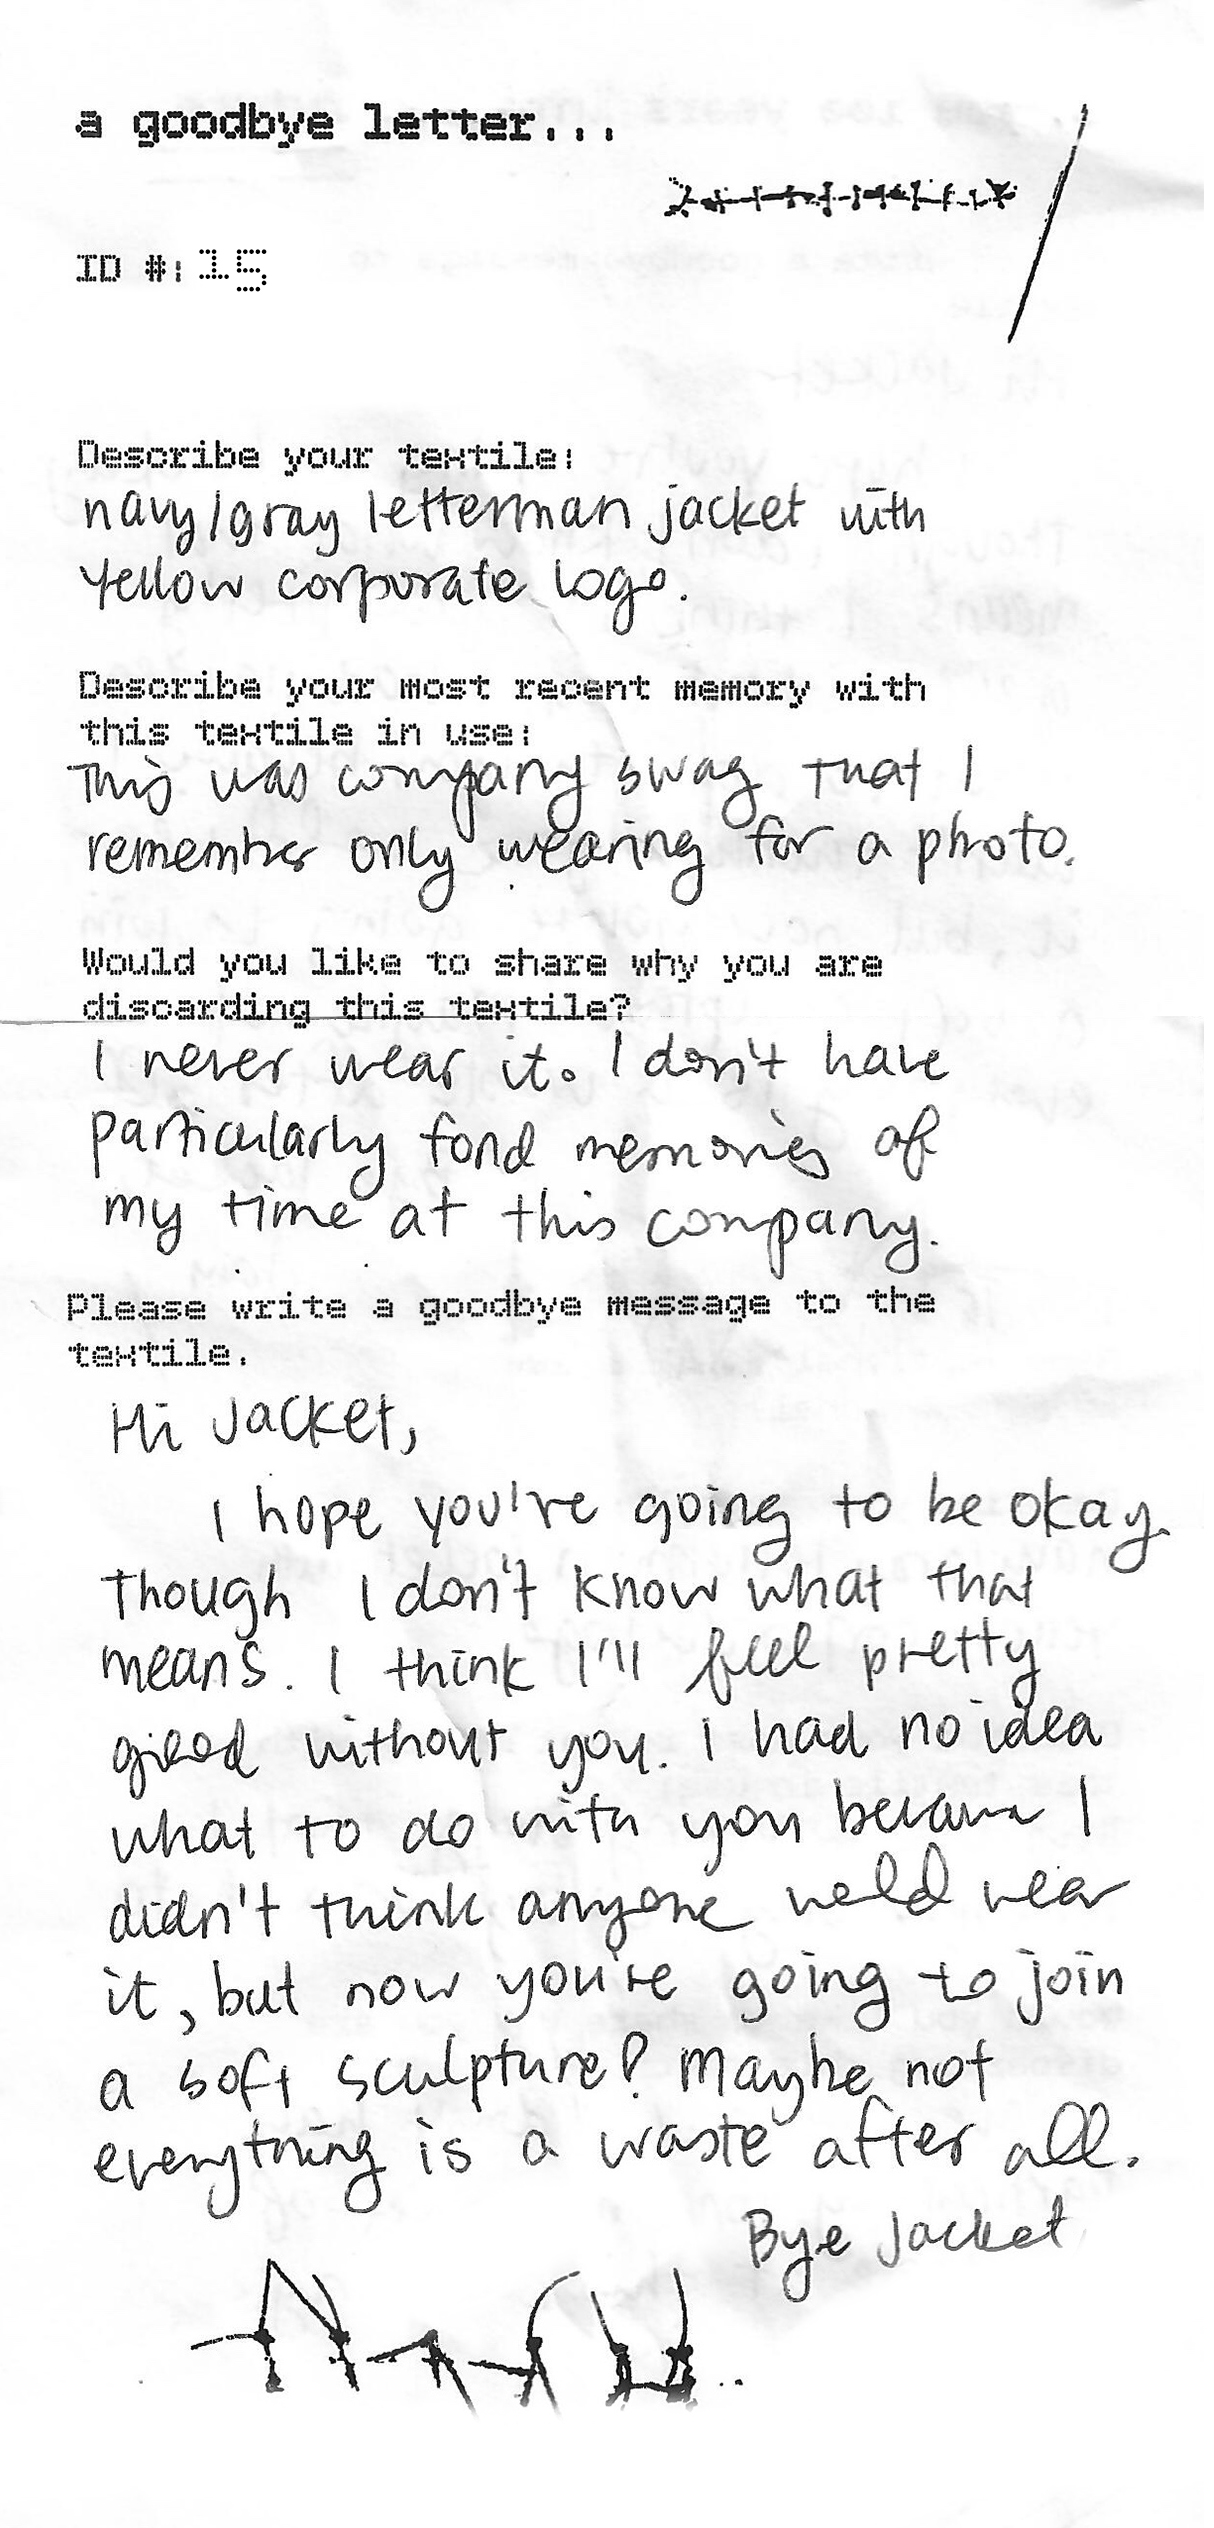 a goodbye letter...
ID #: 15
Describe your textile:
navy/gray letterman jacket with
yellow corporate logo.
Describe your most recent memory with
this textile in use:
This was company swag that I
remember only wearing for a photo.
Would you like to share why you are
discarding this textile?
I never wear it. I don't have
particularly fond memories of
my time at this company.
Please write a goodbye message to the
textile.
Hi Jacket,
I hope you're going to be okay.
Though I don't know what that
means. I think I'll feel pretty
good without you. I had no idea
what to do with you because I
didn't think anyone would wear
it, but now you're going to join
a soft sculpture! Maybe not
everything is a waste after all.
Bye Jacket